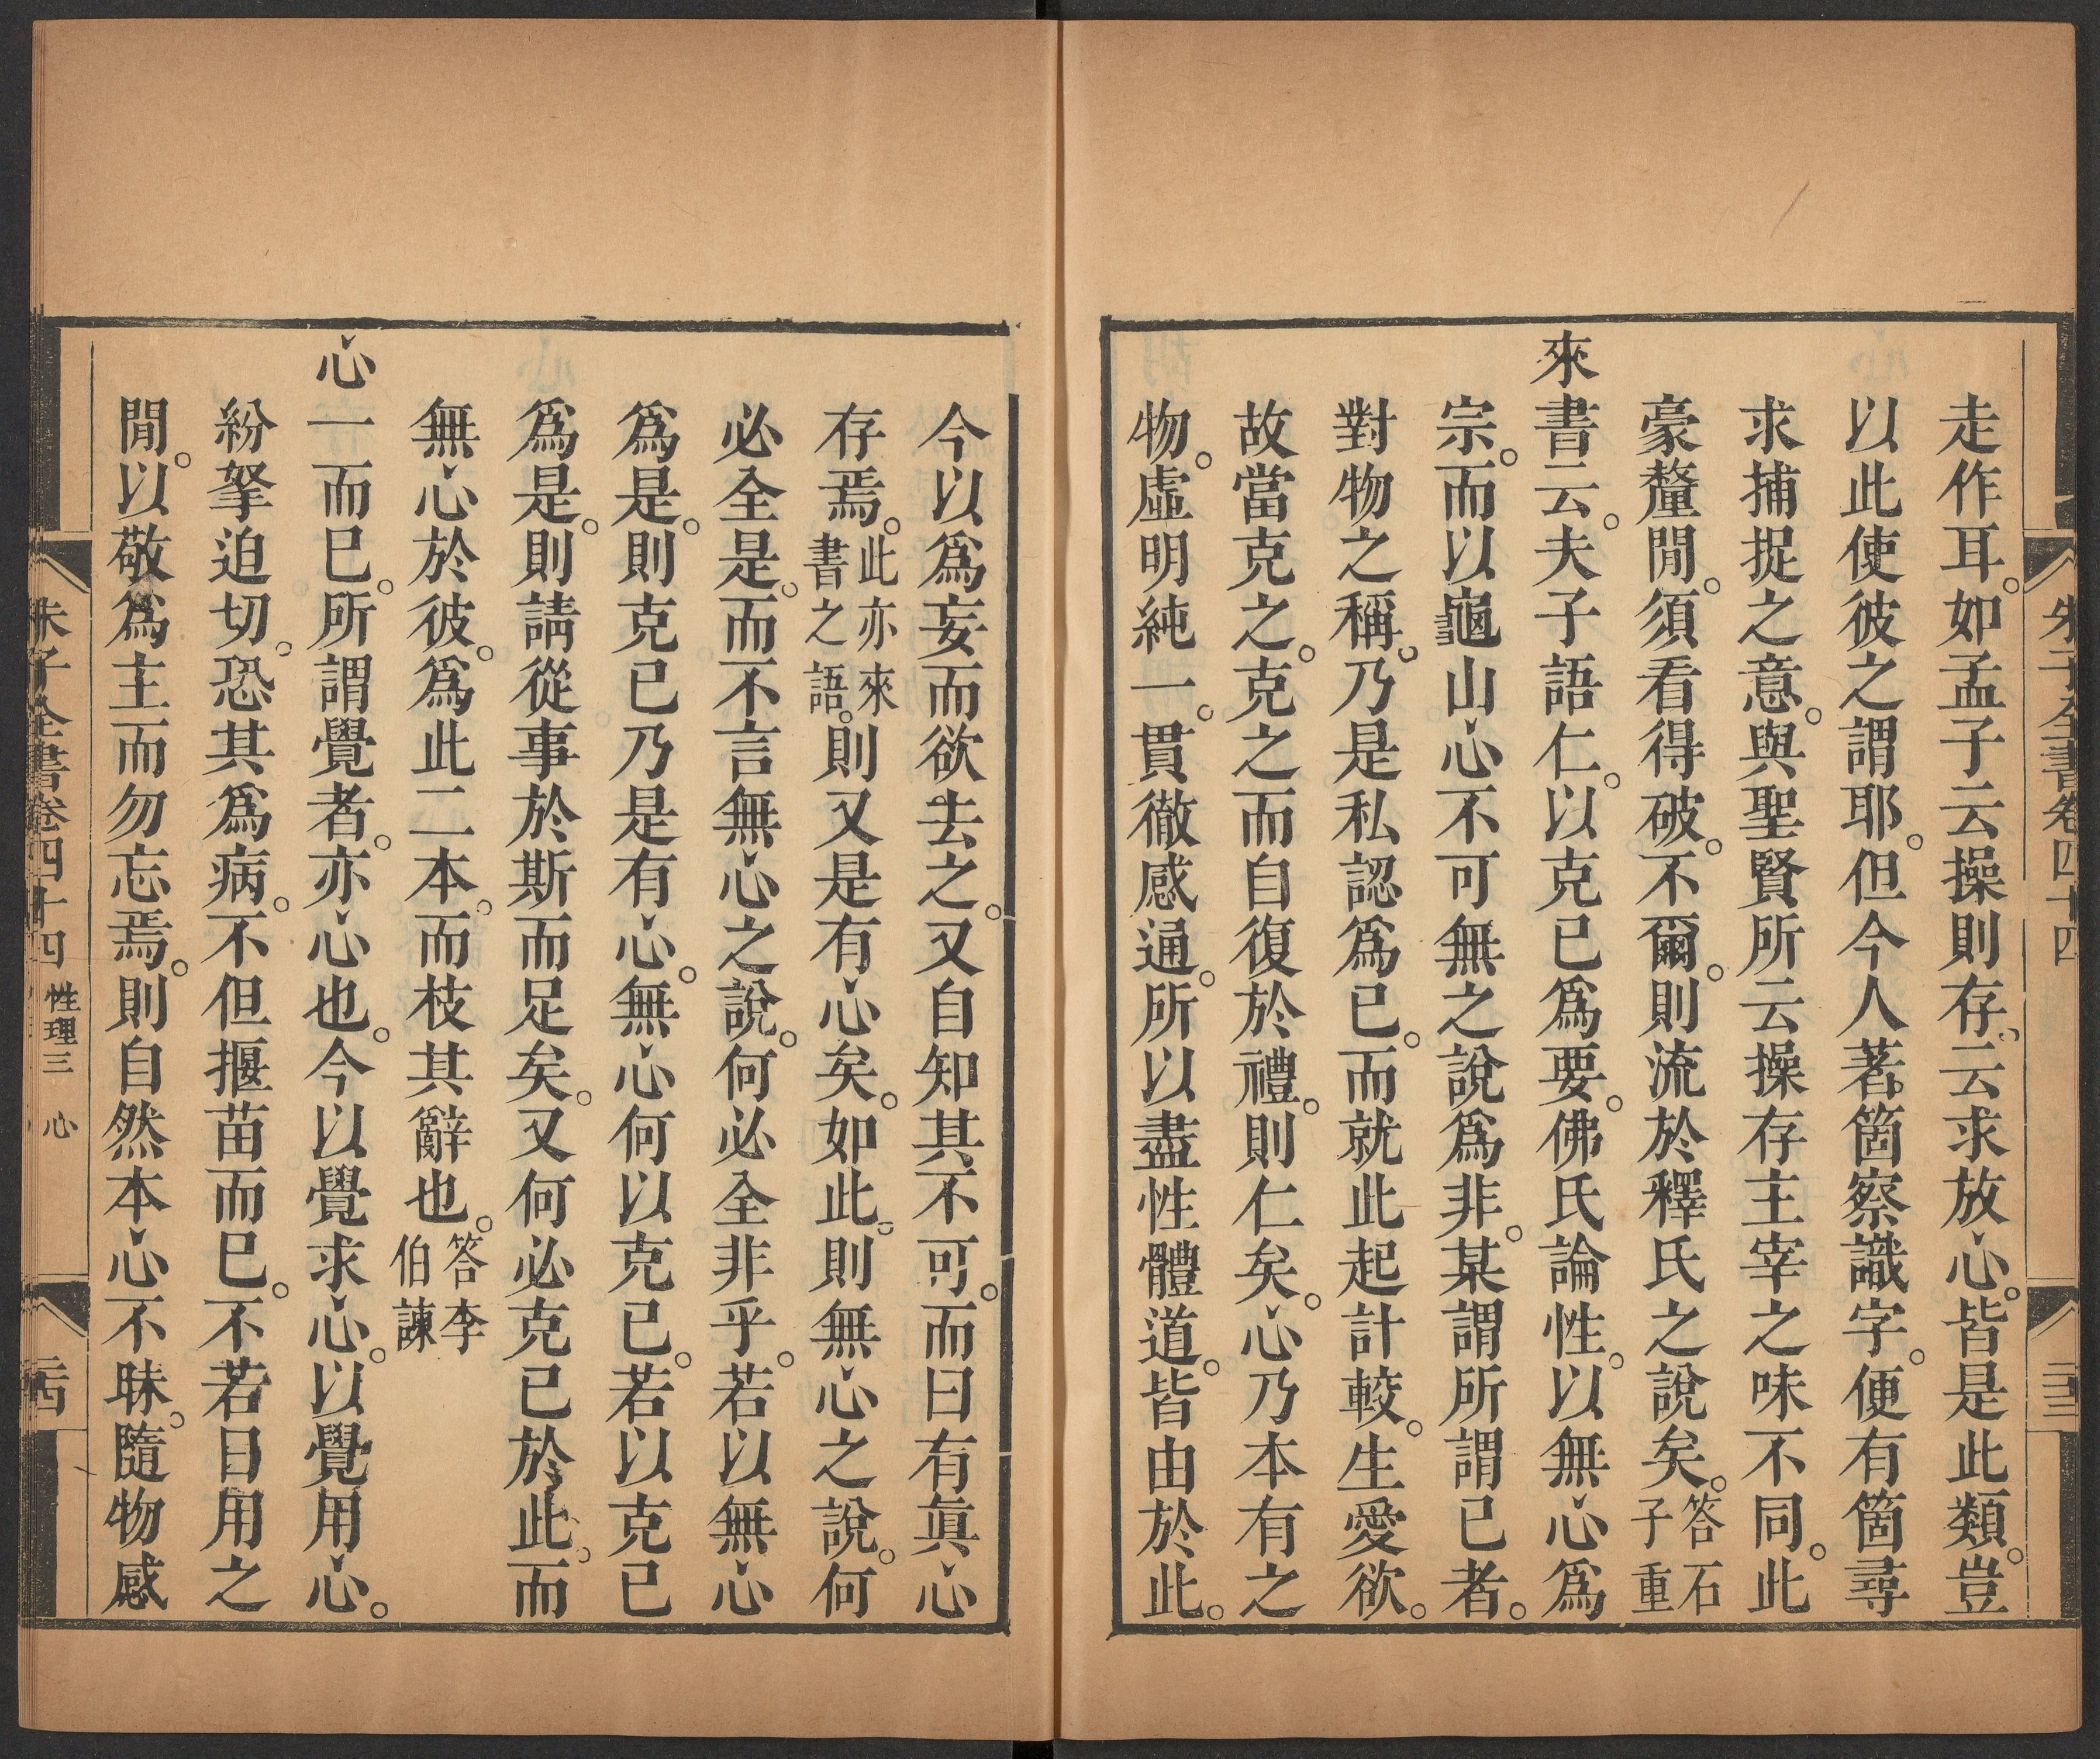 朱子全書卷四十四
二十三
走作耳。如孟子云操則存。云求放心。皆是此類。豈
以此使彼之謂耶。但今人著箇察識字。便有箇尋
求捕捉之意。與聖賢所云操存主宰之味不同。此
豪釐閒。須看得破。不爾。則流於釋氏之說矣。答石子重
來書云。夫子語仁。以克已爲要。佛氏論性。以無心爲
宗。而以龜山心不可無之說爲非。某謂所謂已者。
對物之稱。乃是私認爲已。而就此起計較。生愛欲。
故當克之。克之而自復於禮。則仁矣。心乃本有之
物。虛明純一。貫徹感通。所以盡性體道。皆由於此。
今以爲妄而欲去之。又自知其不可。而曰有眞心
存焉。此亦來書之語。則又是有心矣。如此。則無心之說。何
必全是。而不言無心之說。何必全非乎。若以無心
爲是。則克已乃是有心。無心何以克已。若以克已
爲是。則請從事於斯而足矣。又何必克已於此。而
無心於彼。爲此二本。而枝其辭也。答李伯諫
心一而已。所謂覺者。亦心也。今以覺求心。以覺用心。
紛拏迫切。恐其爲病。不但揠苗而已。不若日用之
閒。以敬爲主而勿忘焉。則自然本心不昧。隨物感
朱子全書卷四十四 性理三 心
二十四